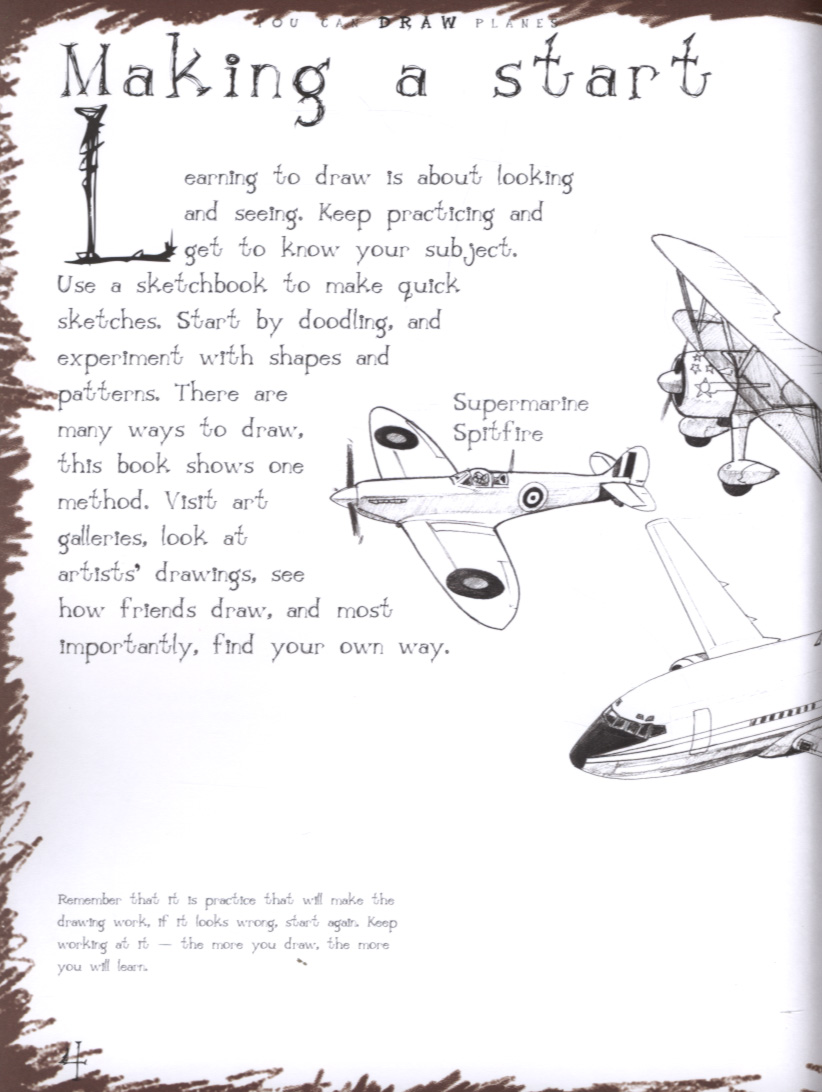 YOU CAN DRAW PLANES
Making a start
Learning to draw is about looking
and seeing. Keep practicing and
get to know your subject.
Use a sketchbook to make quick
sketches. Start by doodling, and
experiment with shapes and
patterns. There are
many ways to draw,
this book shows one
method. Visit art
galleries, look at
artists' drawings, see
how friends draw, and most
importantly, find your own way.
Supermarine
Spitfire
Remember that it is practice that will make the
drawing work, if it looks wrong, start again. Keep
working at it — the more you draw, the more
you will learn.
4